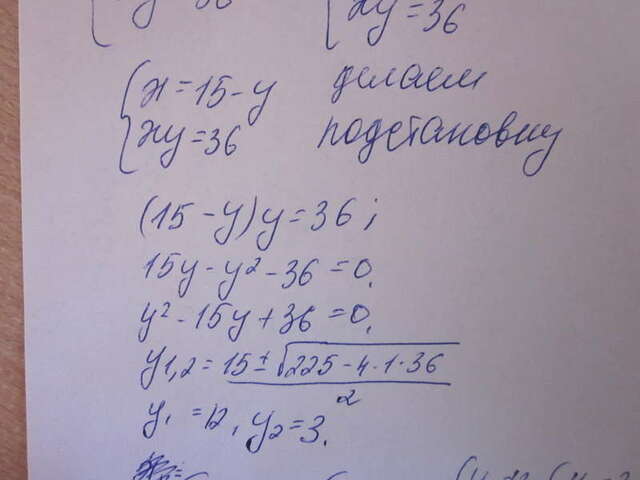 xy=36
{x=15-y делаем
{xy=36 подстановку
(15-y)y=36;
15y-y²-36=0.
y²-15y+36=0.
y1,2=15±√225-4·1·36
2
y1=12, y2=3.